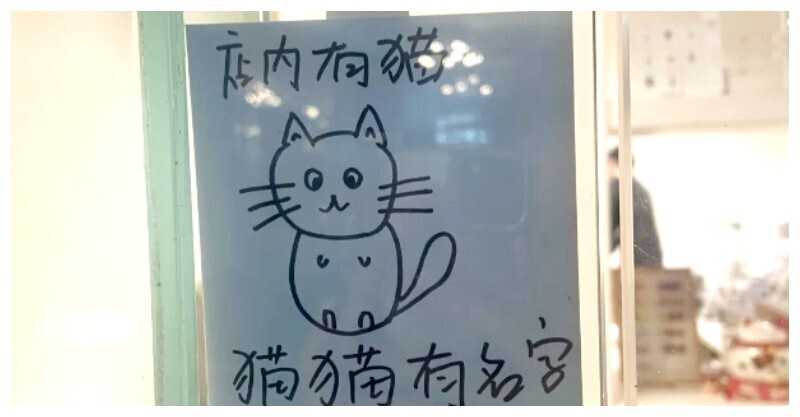 店内有猫
猫猫有名字